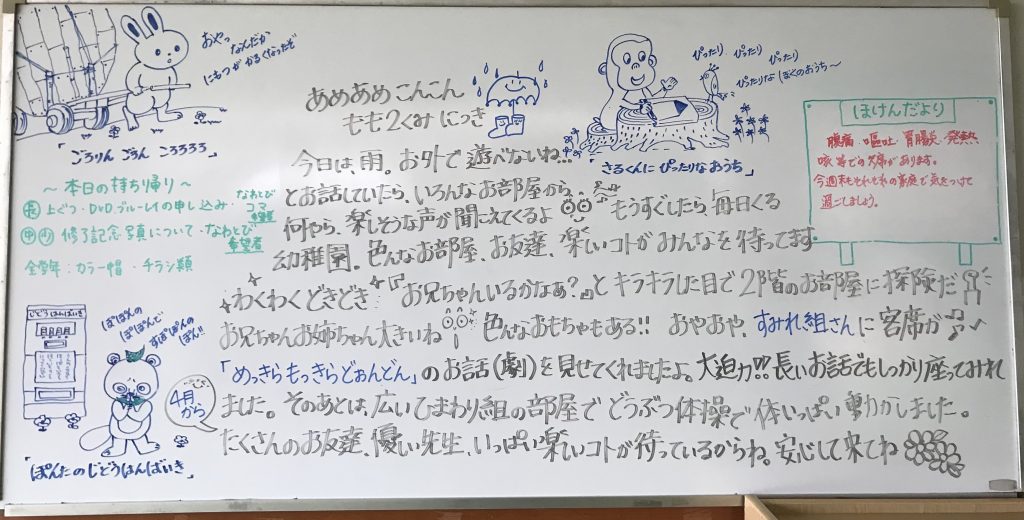 おやっ
なんだか
にもつが かるくなったぞ
「ごろりん ごろん ころろろろ」
ぴったり、ぴったり、
ぴったり
ぴったりな ぼくのおうち〜
「さるくんに ぴったりなおうち」
ほけんだより
腹痛・嘔吐・胃腸炎・発熱
咳等での欠席があります。
今週末もそれぞれの家庭で気をつけて
過ごしましょう。
〜 本日の持ち帰り 〜
長 上ぐつ・DVD、ブルーレイの申し込み・なわとび
コマ
希望者
中 少 修了記念写真について・なわとび
希望者
全学年:カラー帽 ・チラシ類
じどうはんばいき
ぽぽんの
ぽぽんで
すぽぽんの
ぽん!!
「ぽんたのじどうはんばいき」
4月
から
あめあめ こんこん
もも2くみ にっき
今日は、雨。お外で遊べないね!!
とお話していたら、いろんなお部屋から、
何やら、楽しそうな声が聞こえてくるよ もうすぐしたら、毎日くる
幼稚園。色んなお部屋、お友達、楽しいコトがみんなを待ってます
わくわくどきどき 『お兄ちゃんいるかなぁ?』とキラキラした目で2階のお部屋に探険だ
お兄ちゃんお姉ちゃん大きいね 色んなおもちゃもある!! おやおや、すみれ組さんに客席が
「めっきらもっきらどおんどん」のお話(劇)を見せてくれましたよ。大迫力!!長いお話でもしっかり座ってみれ
ました。そのあとは、広いひまわり組の部屋でどうぶつ体操で体いっぱい動かしました。
たくさんのお友達、優しい先生、いっぱい楽しいコトが待っているからね。安心して来てね